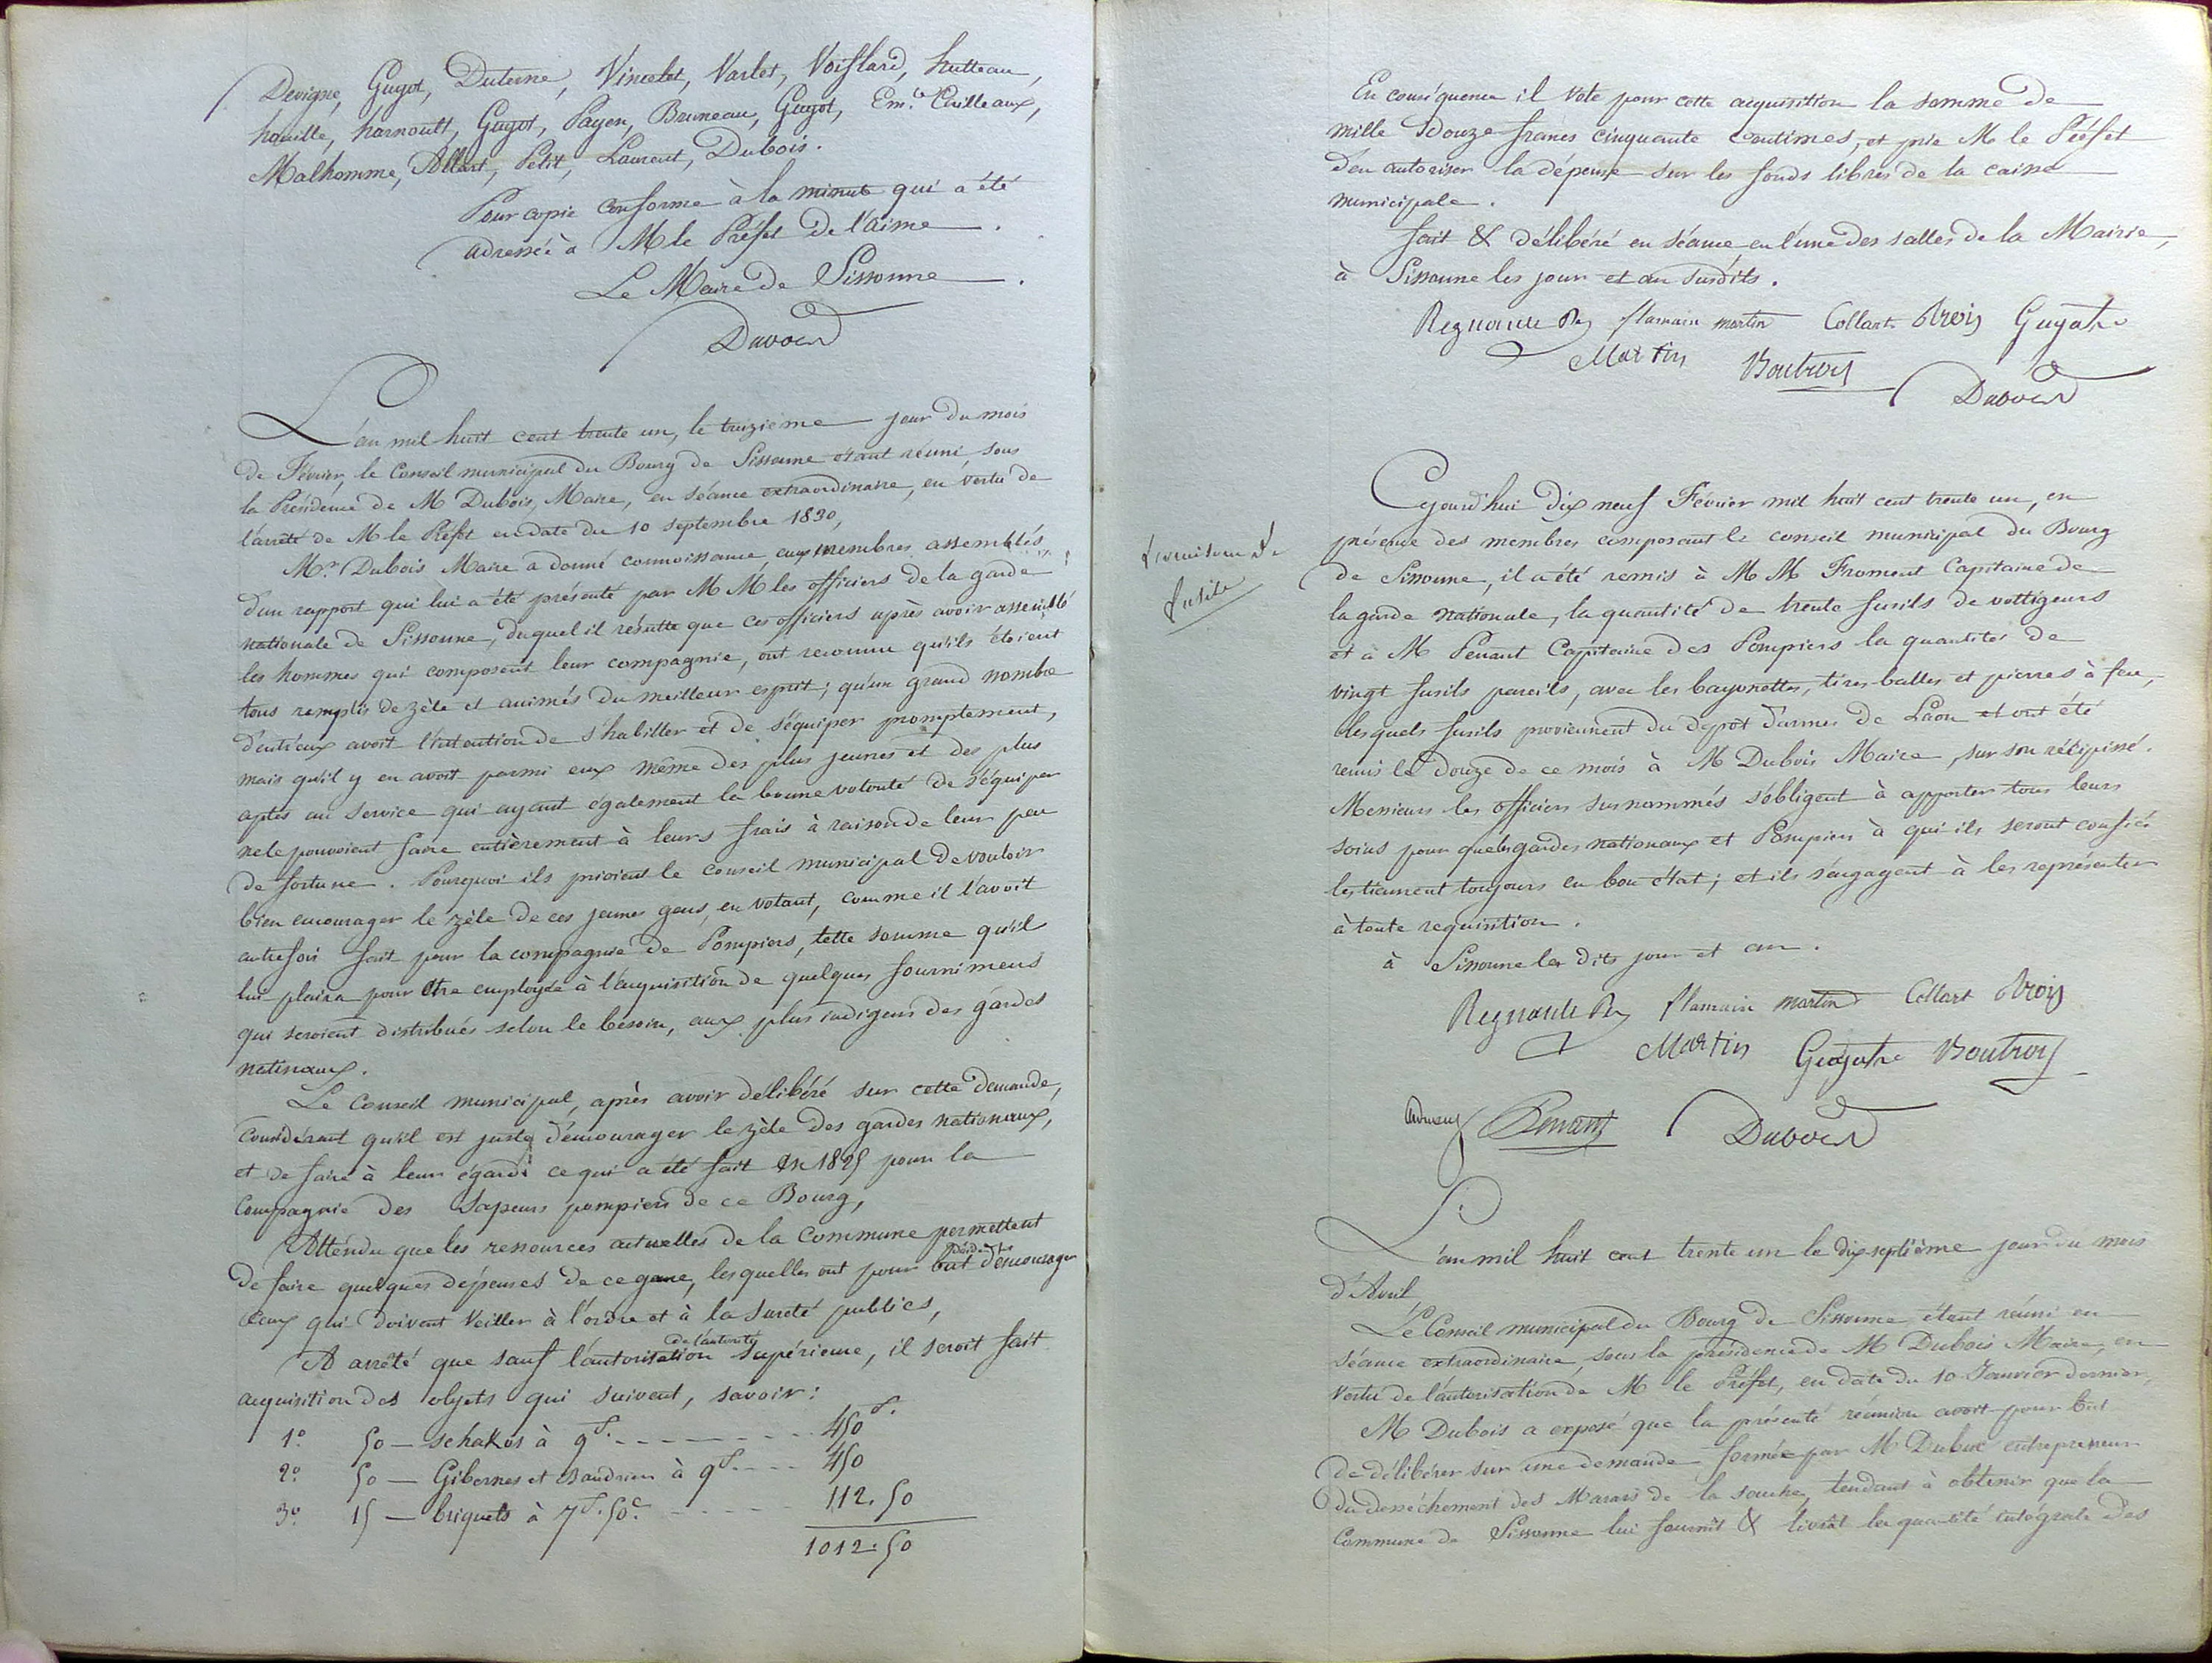 Devigne, Guyot, Duterne, Vincelet, Varlet, Voiflard, hutteau,
houille, harnoult, Guyot, Payen, Bruneau, Guyot, Em.le Cailleaux,
Malhomme, Allart, Petit, Laurent, Dubois.
Pour copie conforme à la minute qui a été
adressée à M le Préfet de l'aisne.
Le Maire de Sissonne.
Dubois
L'an mil huit cent trente un, le treizième jour du mois
de Février, le Conseil municipal du Bourg de Sissonne étant réuni, sous
la Présidence de M Dubois, Maire, en séance extraordinaire, en vertu de
l'arrêté de M le Préfet en date du 10 septembre 1830,
Mr. Dubois Maire a donné connoissance aux membres assemblés
d'un rapport qui lui a été présenté par M M les officiers de la garde
nationale de Sissonne, duquel il résulte que ces officiers après avoir assemblé
les hommes qui composent leur compagnie, ont reconnu qu'ils étoient
tous remplis de zèle et animés du meilleur esprit; qu'un grand nombre
d'entr'eux avoit l'intention de s'habiller et de s'équiper promptement,
mais qu'il y en avoit parmi eux même des plus jeunes et des plus
aptes au service qui ayant également la bonne volonté de s'équiper
ne le pouvoient faire entièrement à leurs frais à raison de leur peu
de fortune. Pourquoi ils prioient le conseil municipal de vouloir
bien encourager le zèle de ces jeunes gens, en votant, comme il l'avoit
autrefois fait pour la compagnie de Pompiers, telle somme qu'il
lui plaira pour être employée à l'acquisition de quelques fournimens
qui seroient distribués selon le besoin, aux plus indigens des gardes
nationaux.
Le Conseil municipal, après avoir délibéré sur cette demande,
Considérant qu'il est juste d'encourager le zèle des gardes nationaux,
et de faire à leur égard ce qui a été fait en 1825 pour la
Compagnie des Sapeurs pompiers de ce Bourg,
Attendu que les ressources actuelles de la Commune permettent
de faire quelques dépenses de ce genre, lesquelles ont pour but d'encourager
ceux qui doivent veiller à l'ordre et à la sureté publics,
A arrêté que sauf l'autorisation de l'autorité supérieure, il seroit fait
acquisition des objets qui suivent, savoir:
1º. 50 — schakos à 9f. - - - - - - 450f.
2º. 50 — Gibernes et Baudriers à 9f. - - - 450
3º. 15 — briquets à 7f. 50c. - - - - 112. 50
1012. 50
En conséquence il vote pour cette acquisition la somme de
mille douze francs cinquante centimes, et prie M le Préfet
d'en autoriser la dépense sur les fonds libres de la caisse
municipale.
fait & délibéré en séance en l'une des salles de la Mairie,
à Sissonne les jour et an susdits.
flamain martin Collart Guyot
Martin Boutroy
Dubois
fourniture de
fusils
Cejourd'hui dix neuf Février mil huit cent trente un, en
présence des membres composant le conseil municipal du Bourg
de Sissonne, il a été remis à M M Froment Capitaine de
la garde nationale, la quantité de trente fusils de voltigeurs
et à M Penant Capitaine des Pompiers la quantités de
vingt fusils pareils, avec les bayonettes, tires balles et pierres à feu,
lesquels fusils proviennent du dépôt d'armes de Laon et ont été
remis le douze de ce mois à M Dubois Maire, sur son récépissé.
Messieurs les officiers susnommés s'obligent à apporter tous leurs
soins pour que les gardes nationaux et Pompiers à qui ils seront confiés
les tiennent toujours en bon état; et ils s'engagent à les représenter
à toute requisition.
à Sissonne les dits jour et an.
flamain martin Collart
Martin Boutroy
Penant Dubois
L'an mil huit cent trente un le dix septième jour du mois
d'Avril
Le Conseil municipal du Bourg de Sissonne étant réuni en
séance extraordinaire, sous la présidence de M Dubois Maire, en
vertu de l'autorisation de M le Préfet, en date du 10 Janvier dernier,
M Dubois a exposé que la présente réunion avoit pour but
de délibérer sur une demande formée par M Dubuc entrepreneur
du desséchement des Marais de la souche, tendant à obtenir que la
Commune de Sissonne lui fournît & livrât la quantité intégrale des